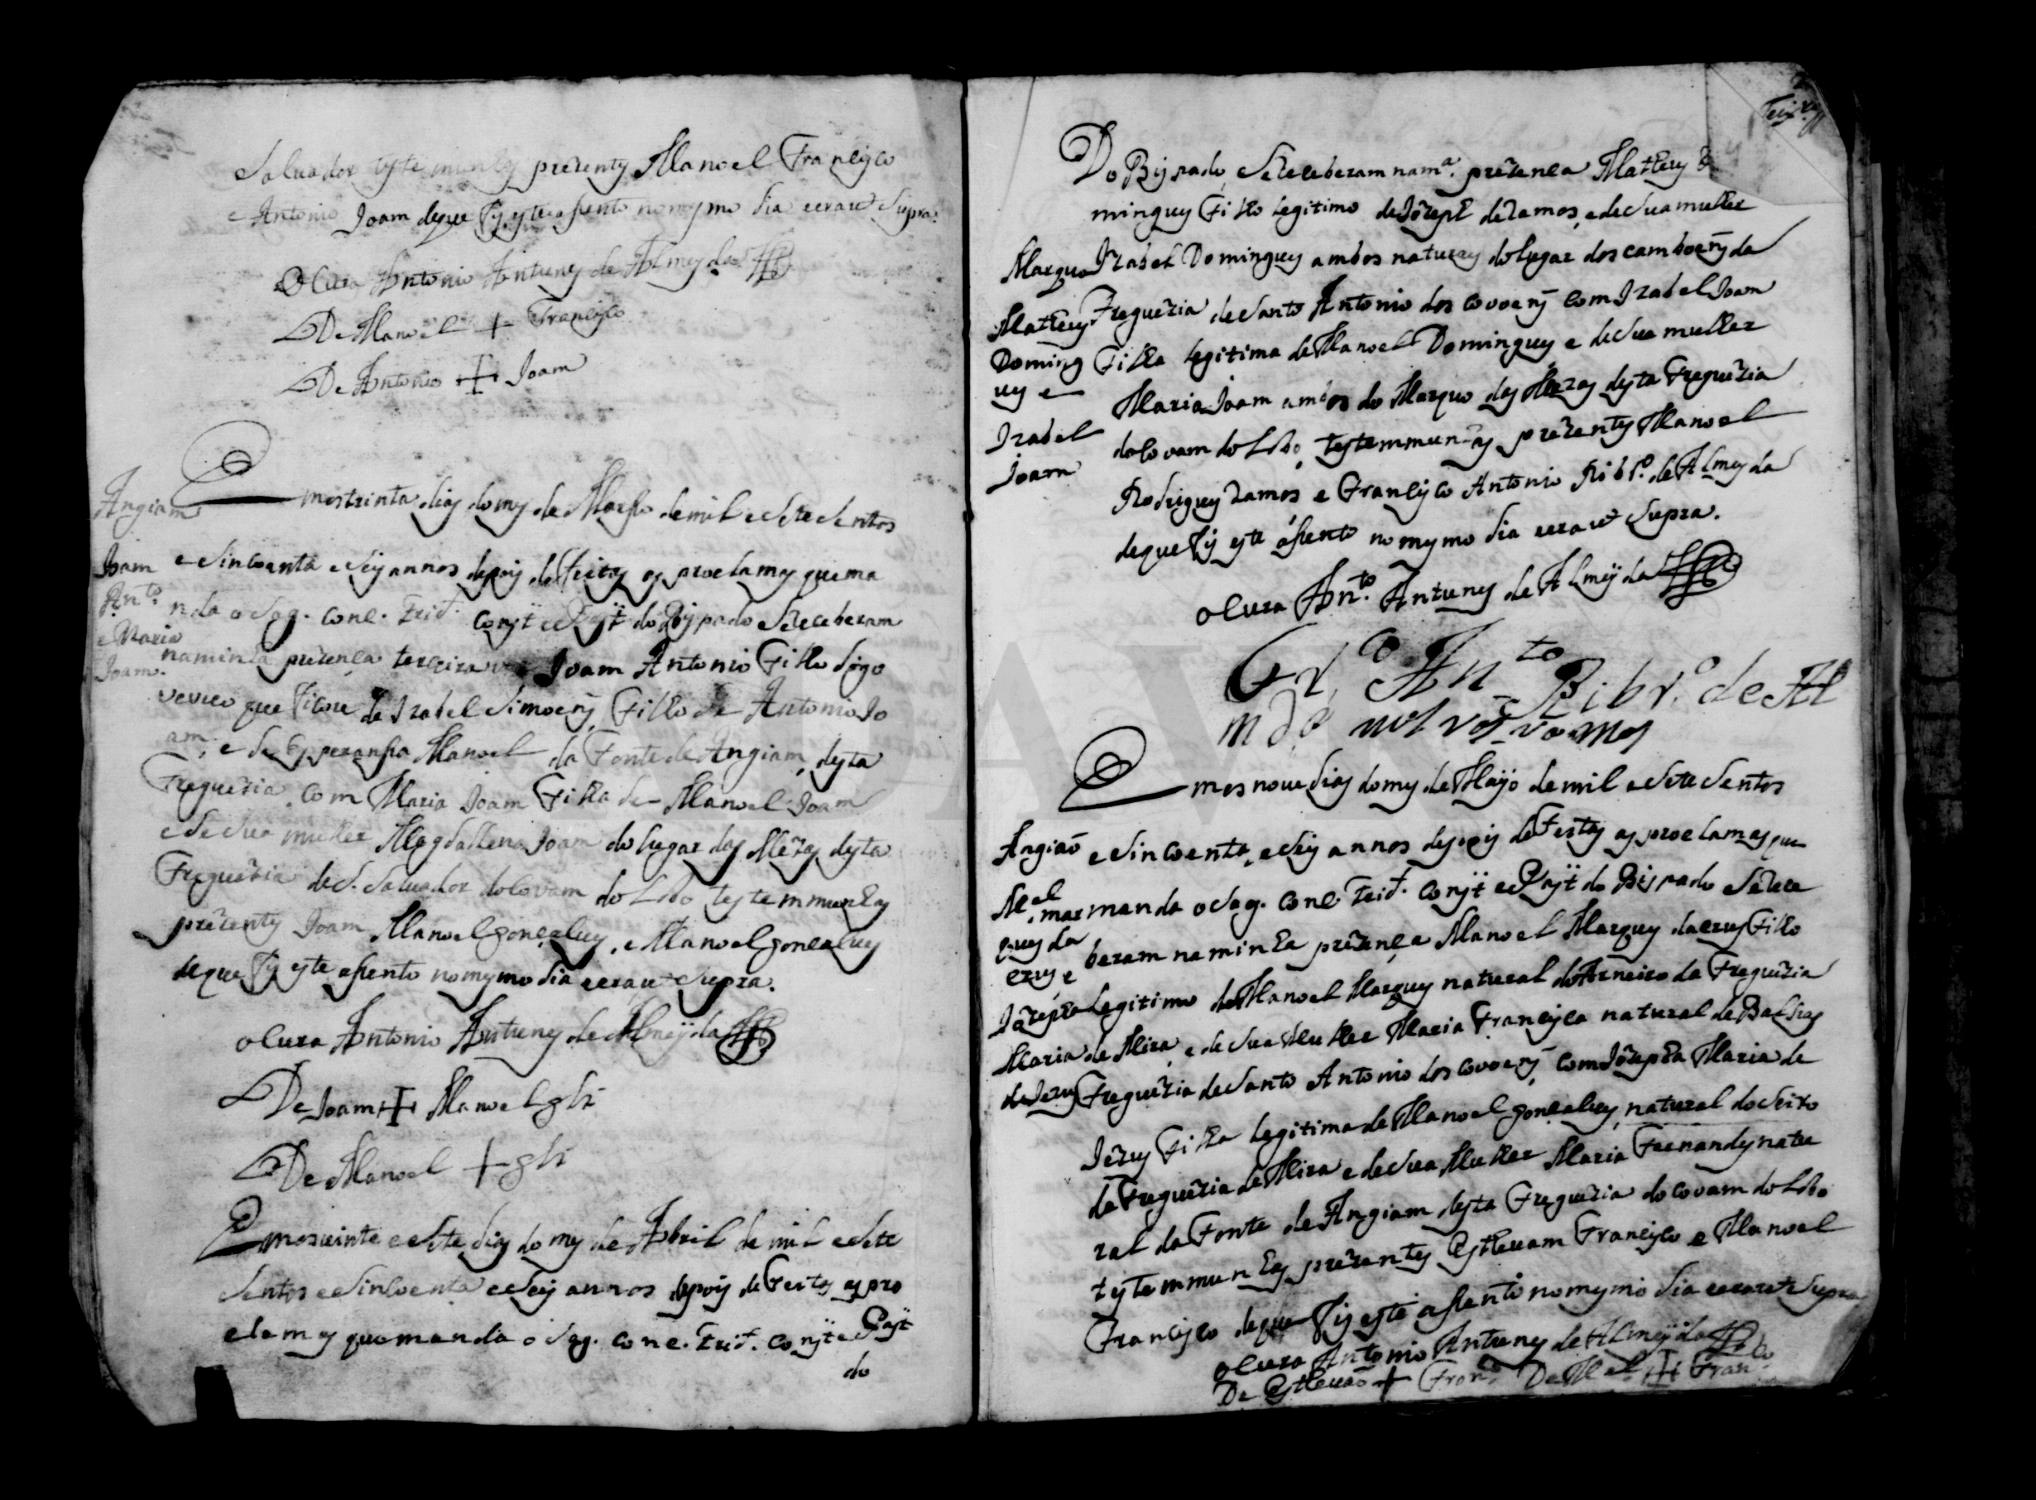 Saluador testemunhas prezentes Manoel Francisco
e Antonio Joam deque fis este asento nomesmo dia eera ut supra.
O Cura Antonio Antunes de Almeyda
De Manoel + Francisco
De Antonio + Joam
Angiam
Joam
Ant.º
e Maria
Joam.
Emostrinta dias domes de Marso demil esetesentos
esincoenta eseis annos depois defeitos os proclamas quema
nda o Sag. Conc. Trid. Consjt do Bispado sereceberam
naminha prezença terceira Joam Antonio filho digo
veuvo que ficou de Izabel Simoens filho de Antonio Jo
am, e de Esperansa Manoel da Fonte de Angiam, desta
Freguezia, com Maria Joam filha de Manoel Joam
edesua mulher Magdalena Joam do lugar das Mezas desta
Freguezia de S. Saluador do Covam do Lobo testemmunhas
prezentes Joam Manoel gonçalues, e Manoel gonçalues
deque fis este asento nomesmo dia eera ut supra.
o Cura Antonio Antunes de Almeyda
De Joam + Manoel glz
De Manoel + glz
Emosvinte esete dias do mes de Abril de mil esete
sentos esincoenta eseis annos depois defeitos os pro
clamas quemanda o Sag. Conc. Trid. Consjt e
do
Do Bispado, sereceberam nam.ª prezença Matheus Do
mingues filho legitimo deJozeph deramos, edesua mulher
Izabel Domingues ambos naturas do lugar dos camboens da
Freguezia de Santo Antonio dos covoens com Izabel Joam
filha legitima de Manoel Domingues e desua mulher
Maria Joam ambos do Marquo das Mezas desta Freguezia
do Covam do Lobo, testemmunhas prezentes Manoel
Rodrigues ramos, e Francisco Antonio Ribr.º de Almeyda
deque fis este asento nomesmo dia eera ut supra.
Marquo
Matheus
Doming
ues e
Izabel
Joam
o Cura Ant.º Antunes de Almeyda
Fr.co Ant.º Ribr.º de Al
mda
Emos noue dias domes de Mayo demil esete sentos
esincoenta, eseis annos depois defeitos os proclamas que
manda o Sag. Conc. Trid. Consjt do Bispado serece
beram naminha prezença Manoel Marques dacrus filho
legitimo de Manoel Marques natural do Arneiro da Freguezia
de Mira, e desua Mulher Maria Francisca natural de
Freguezia deSanto Antonio dos covoens, com Jozepha Maria de
Jezus filha legitima de Manoel gonçalues, natural do Seixo
da Freguezia de Mira e desua Mulher Maria Fernandes natu
ral da Fonte de Angiam desta Freguezia do covam do Lobo
testemmunhas prezentes Esteuam Francisco e Manoel
Francisco deque fis este asento nomesmo dia eera ut supra
Angiaõ
M.el
mar
ques da
crus e
Jozepha
Maria
de Jezus
o Cura Antonio Antunes de Almeyda
De Esteuaõ + Fran.co De M.el + Fran.co